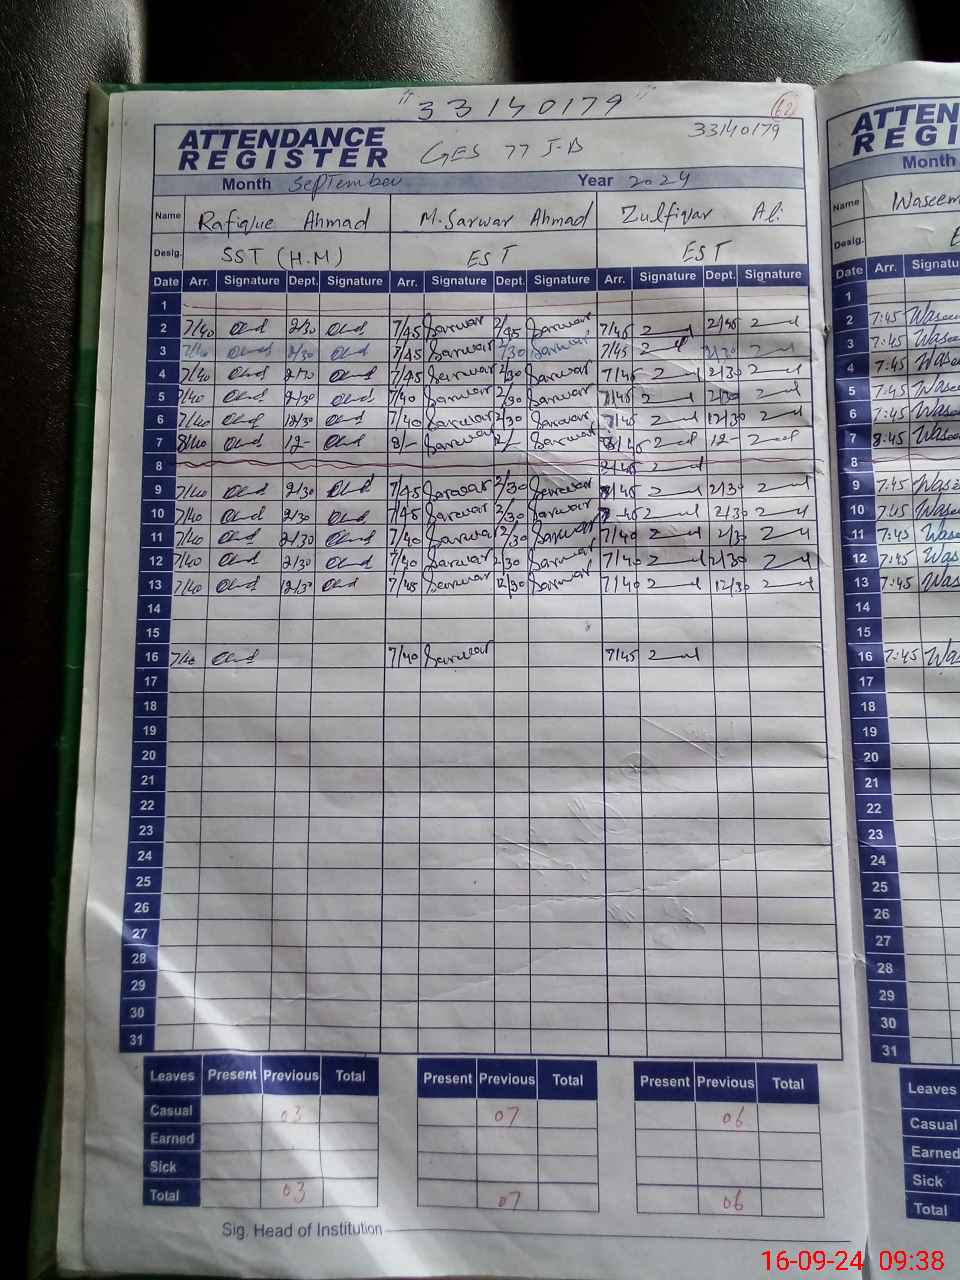 "33140179"
62
ATTENDANCE
REGISTER
GES 77 J-B
33140179
Month September Year 2024
Name Rafique Ahmad M.Sarwar Ahmad Zulfiqar Ali
Desig. SST (H.M) EST EST
Date Arr. Signature Dept. Signature Arr. Signature Dept. Signature Arr. Signature Dept. Signature
1
2 7/40 2/30 7/45 Sarwar 2/45 Sarwar 7/45 2/45
3 7/40 2/30 7/45 Sarwar 2/30 Sarwar 7/45 2/30
4 7/40 2/30 7/45 Sarwar 2/30 Sarwar 7/45 2/30
5 7/40 2/30 7/40 Sarwar 2/30 Sarwar 7/45 2/30
6 7/40 12/30 7/40 Sarwar 12/30 Sarwar 7/45 12/30
7 8/40 12- 8/- Sarwar 12/- Sarwar 12-
8
9 7/40 2/30 7/45 Sarwar 2/30 Sarwar 2/30
10 7/40 2/30 7/45 Sarwar 2/30 Sarwar 2/30
11 7/40 2/30 7/40 Sarwar 2/30 Sarwar 7/40 2/30
12 7/40 2/30 7/40 Sarwar 2/30 Sarwar 7/40 2/30
13 7/40 12/30 7/45 Sarwar 12/30 Sarwar 7/40 12/30
14
15
16 7/40 7/40 Sarwar 7/45
17
18
19
20
21
22
23
24
25
26
27
28
29
30
31
Leaves Present Previous Total Present Previous Total Present Previous Total
Casual 03 07 06
Earned
Sick
Total 03 07 06
Sig. Head of Institution
ATTEN
REGI
Month
Name Waseem
Desig.
Date Arr. Signatu
1
2 7:45 Waseem
3 7:45 Waseem
4 7:45 Waseem
5 7:45 Waseem
6 7:45 Waseem
7 8:45 Waseem
8
9 7:45 Wasee
10 7:45 Wase
11 7:45 Wase
12 7:45 Was
13 7:45 Wase
14
15
16 7:45 Was
17
18
19
20
21
22
23
24
25
26
27
28
29
30
31
Leaves
Casual
Earned
Sick
Total
16-09-24 09:38